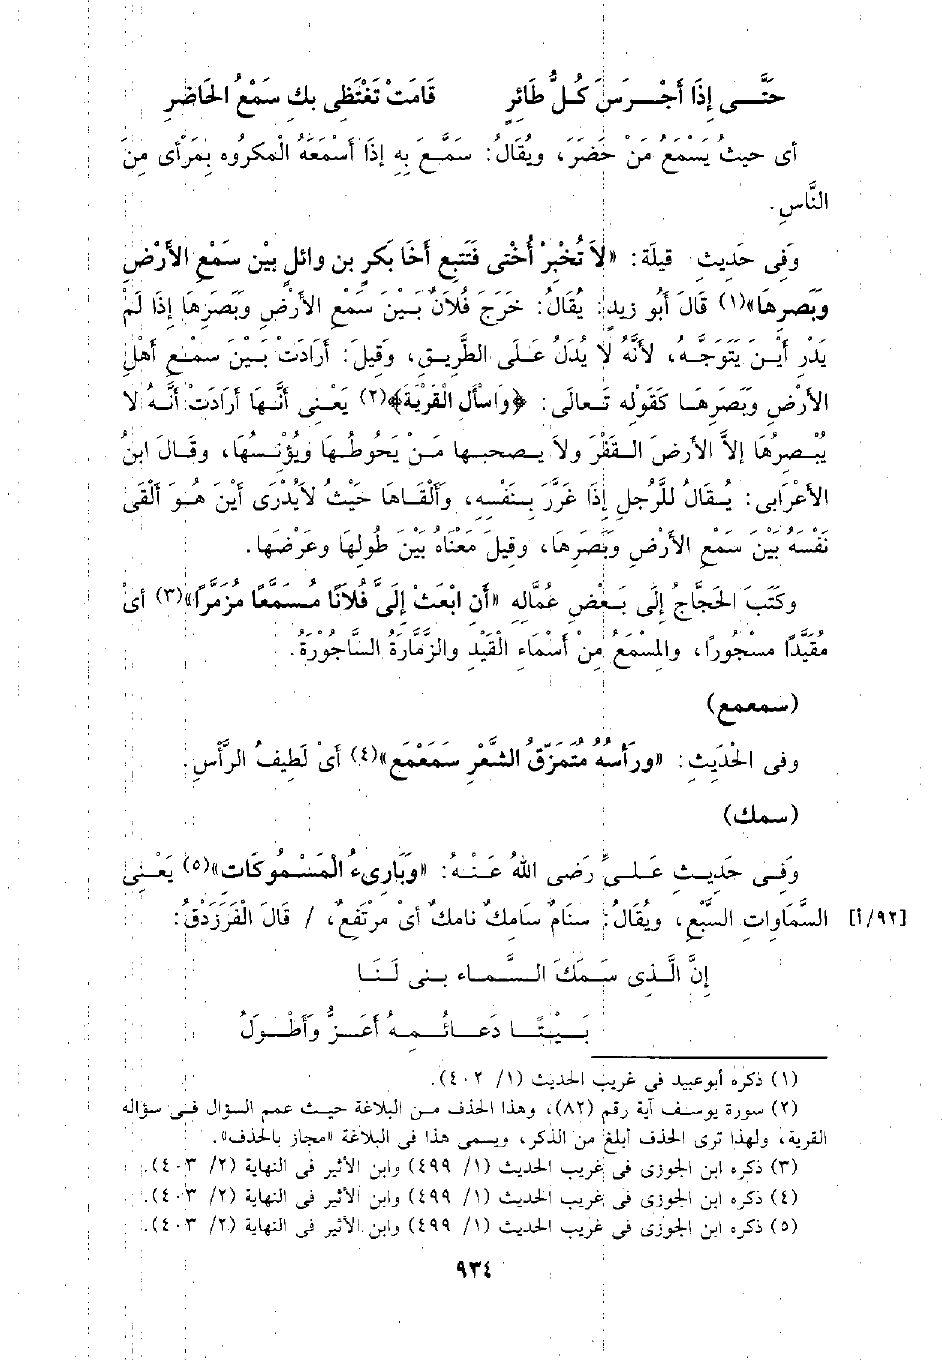 حَتَّـــى إِذَا أَجْــرَسَ كُــلُّ طَائِرٍ قَامَتْ تَغْنَظِى بِك سَمْعَ الحَاضِرِ
أى حيثُ يَسْمَعُ مَنْ حَضَرَ، ويُقَالُ: سَمَّعَ بِهِ إِذَا أَسْمَعَهُ المكروه بِمَرْأَى مِنَ
النَّاسِ.
وَفِى حَدِيثِ قيلَة: «لاَ تُخْبِرْ أُخْتِى فَتَتَبِع أَخَا بَكرِ بن وائلٍ بيْن سَمْعِ الأَرْضِ
وبَصَرِهَا»(١) قَالَ أَبُو زيد: يُقَالُ: خَرَجَ فُلاَنٌ بَيْنَ سَمْعِ الأَرْضِ وبَصَرِهَا إِذَا لَمْ
يَدْرِ أَيْنَ يَتَوَجَّهُ، لأَنَّهُ لا يُدَلُّ عَلَى الطَّرِيقِ، وَقيلَ: أَرَادَتْ بَيْنَ سمْعِ أَهْلِ
الأَرْضِ وبَصَرِهَا كقَوْلِه تَعالَى: ﴿وَاسْأَلِ القَرْيَةَ﴾(٢) يَعْنِى أَنَّها أَرَادَتْ أَنَّهُ لا
يُبْصِرُهَا إِلاَّ الأَرْضَ القَفْرَ ولاَ يصحبها مَنْ يَحُوطُها ويُؤْنِسُهَا، وقَالَ ابنُ
الأَعْرَابِى: يُقَالُ للرَّجُلِ إِذَا غَرَّرَ بِنَفْسِه، وأَلْقَاهَا حَيْثُ لاَيُدْرَى أَيْنَ هُوَ أَلْقَى
نَفْسَهُ بَيْنَ سَمْعِ الأَرْضِ وَبَصَرِهَا، وقيلَ مَعْنَاهُ بَيْنَ طُولِهَا وعَرْضِها.
وكَتَبَ الحَجَّاجُ إِلَى بَعْضِ عُمَّالِه «أَن ابْعَثْ إِلَىَّ فُلاَنًا مُسَمَّعًا مُزَمَّرًا»(٣) أى
مُقَيَّدًا مسْجُورًا، والمِسْمَعُ مِنْ أَسْمَاءِ القَيْدِ والزَّمَّارَةُ السَّاجُورَةُ.
(سمعمع)
وفى الحْدَيث: «ورَأْسُهُ مُتَمَزِّقُ الشَّعْرِ سَمَعْمَع»(٤) أَىْ لَطِيفُ الرَّأْسِ.
(سمك)
وَفِى حديثِ عَلىٍّ رَضى اللهُ عَنْهُ: «وَبَارِىءَ المَسْمُوكَات»(٥) يَعْنى
السَّماوات السَّبْعِ، ويُقَالُ: سنَامٌ سَامِكٌ نامكٌ أَىْ مرْتَفعٌ، / قَالَ الْفَرَزْدَقُ: [٩٢/أ]
إِنَّ الَّـذِى سَـمَكَ السَّـمـاءَ بـنى لَـنَـا
بَـيْـتًـا دَعَـائِـمـهُ أَعَـزُّ وأَطْـوَلُ
(١) ذكره أبوعبيد فى غريب الحديث (١/ ٤٠٢).
(٢) سورة يوسف آية رقم (٨٢)، وهذا الحذف من البلاغة حيث عمم السؤال فى سؤاله
القرية، ولهذا ترى الحذف أبلغ من الذكر، ويسمى هذا فى البلاغة «مجاز بالحذف».
(٣) ذكره ابن الجوزى فى غريب الحديث (١/ ٤٩٩) وابن الأثير فى النهاية (٢/ ٤٠٣).
(٤) ذكره ابن الجوزى فى غريب الحديث (١/ ٤٩٩) وابن الأثير فى النهاية (٢/ ٤٠٣).
(٥) ذكره ابن الجوزى فى غريب الحديث (١/ ٤٩٩) وابن الأثير فى النهاية (٢/ ٤٠٣).
٩٣٤